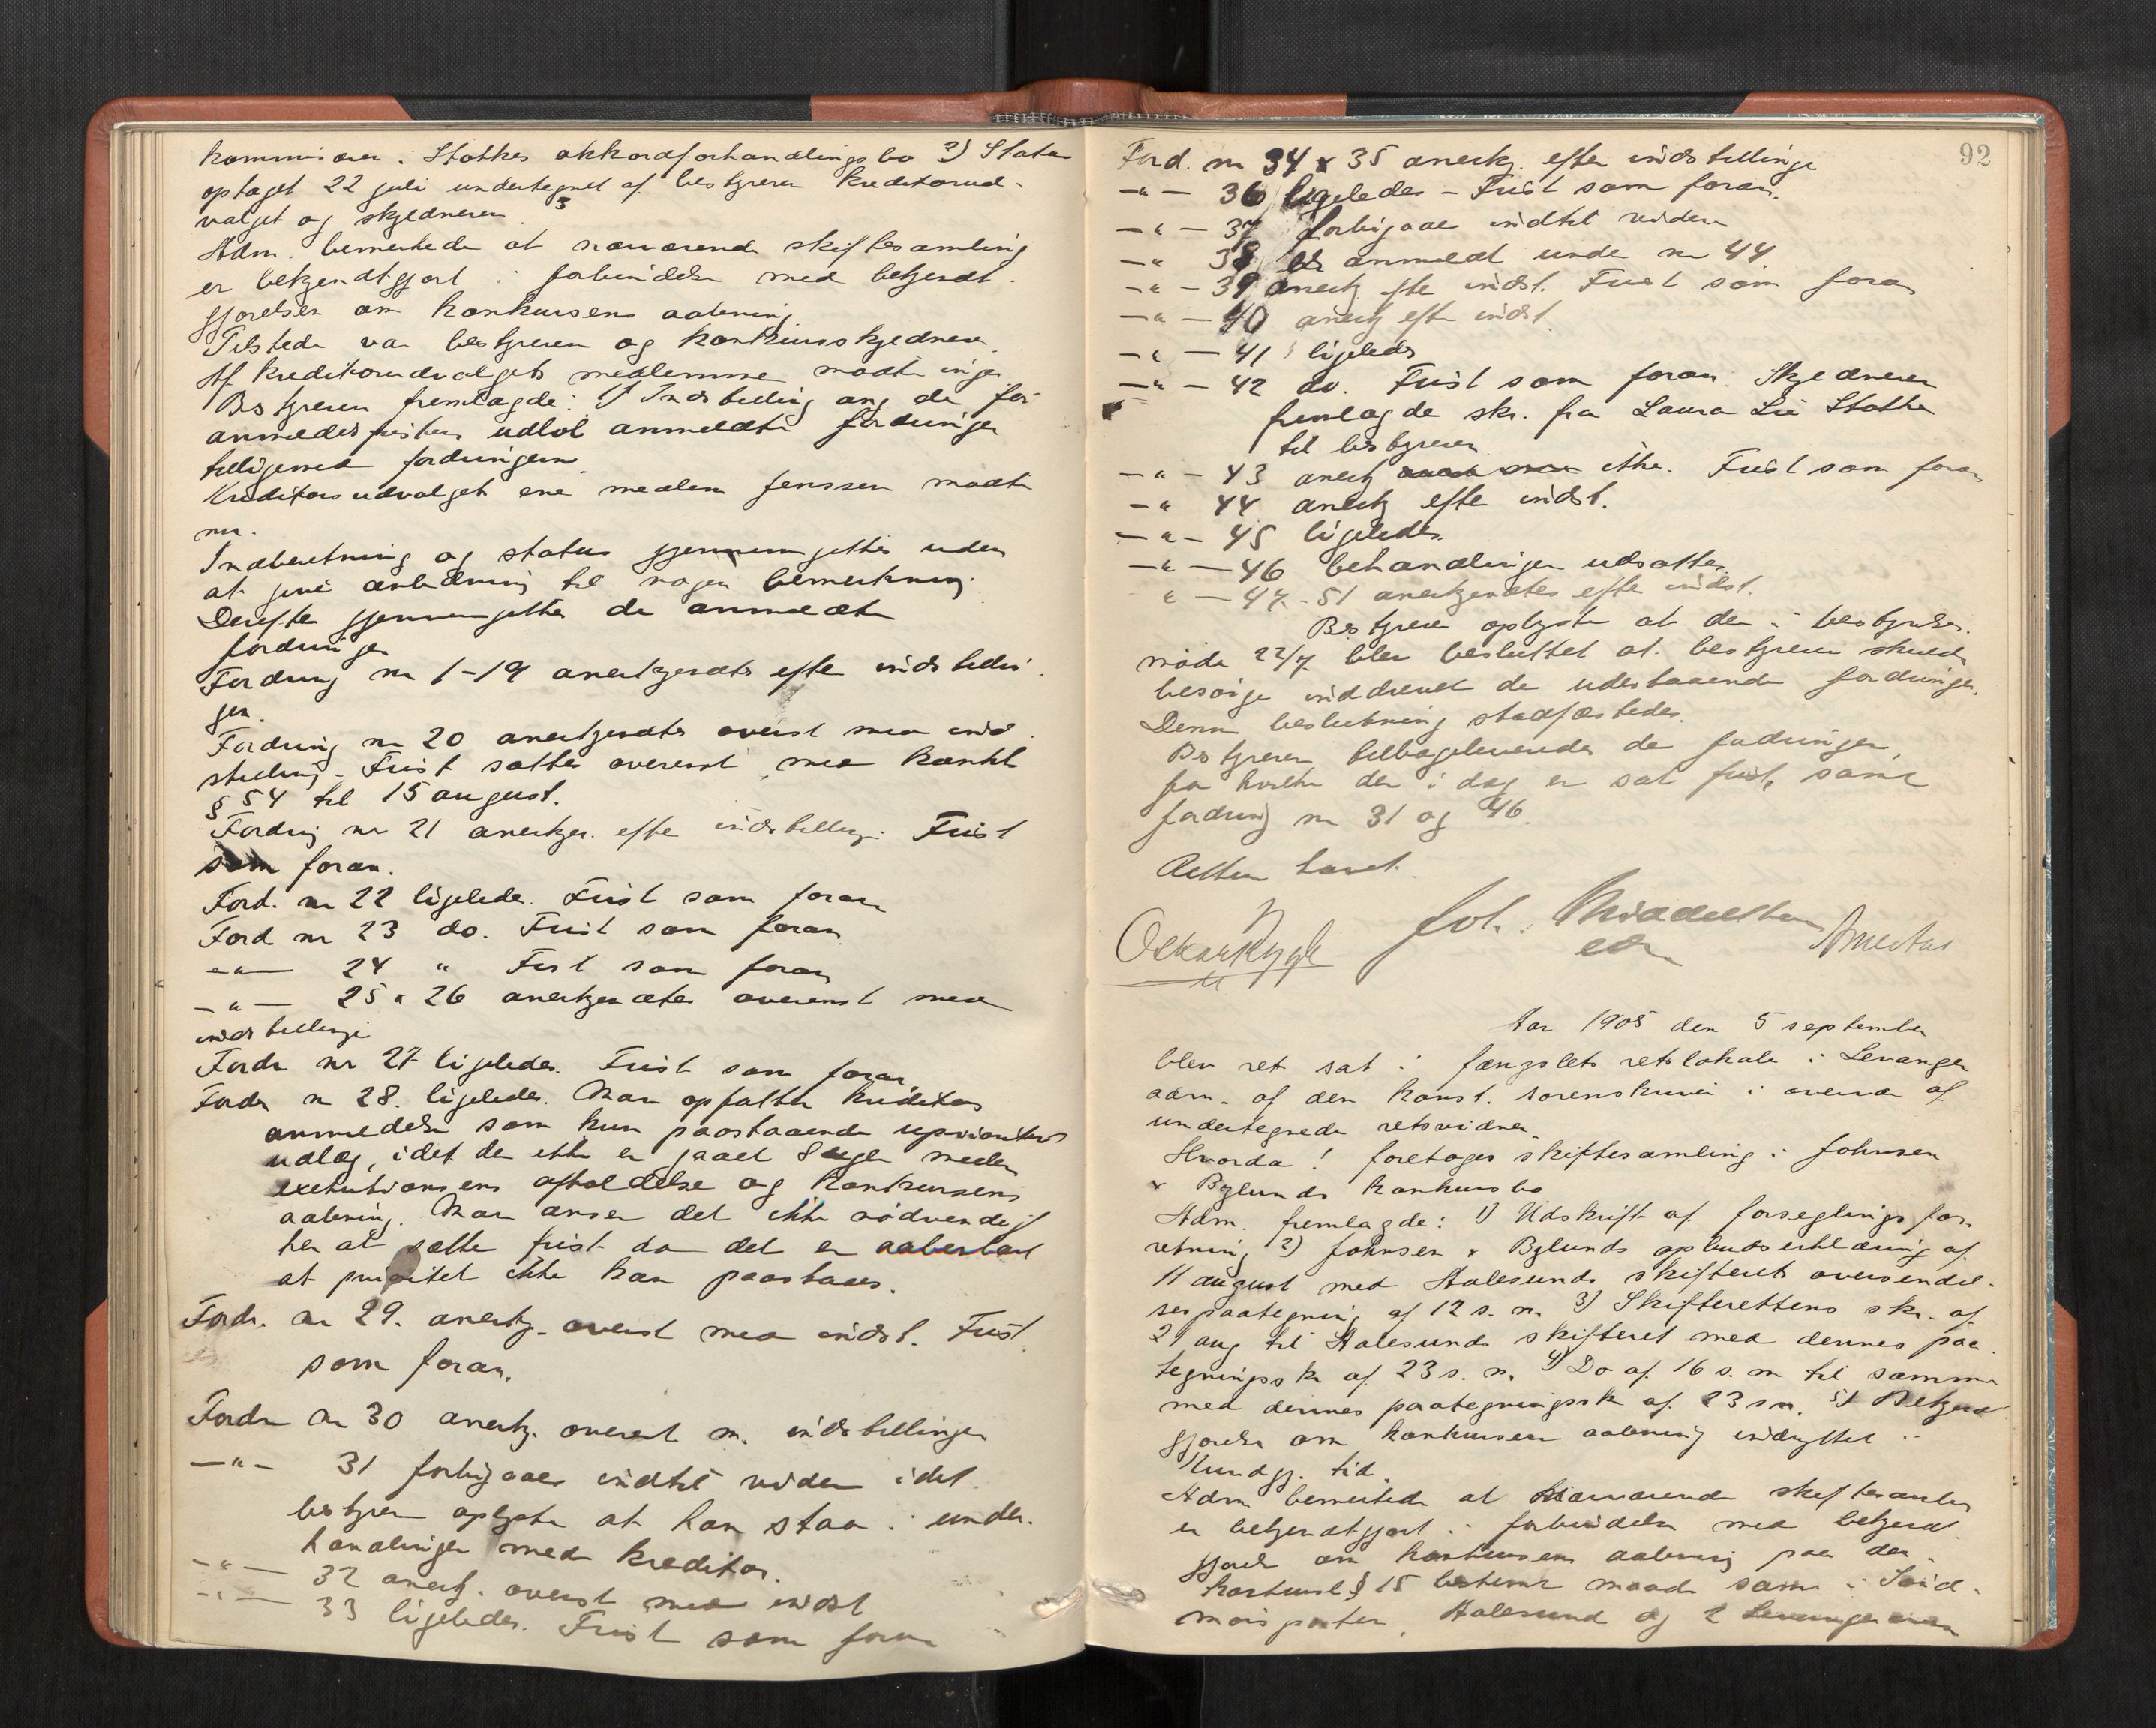 kommissærer i Stathes akkordforhandlingsbo 2) Status
optaget 22 juli undertegnet af bestyreren kreditorud-
valget og skyldneren.
Adm. bemerkede at nærværende skiftesamling
er bekjendtgjort i forbindelse med bekjendt-
gjørelsen om konkursens aabning.
Tilstede var bestyreren og konkursskyldneren.
Af kreditorudvalgets medlemmer mødte ingen
Bestyreren fremlagde: 1) Indstilling ang. de før
anmeldesfristens udløb anmeldte fordringer
tilligemed fordringerne.
Kreditorudvalgets ene medlem Jenssen mødte
nu.
Indberetning og status gjennemgikkes uden
at give anledning til nogen bemerkning.
Derefter gjennemgikkes de anmeldte
fordringer
Fordring nr 1-19 anerkjendtes efter indstillin-
gen.
Fordring nr 20 anerkjendtes overenst med ind-
stilling. Frist sattes overenst med konkl
§ 54 til 15 august.
Fordring nr 21 anerkjen. efter indstilling. Frist
som foran.
Ford. nr 22 ligeledes. Frist som foran
Ford nr 23 do. Frist som foran
-"- 24 " Frist som foran
-"- 25 & 26 anerkjendtes overenst med
indstillinge
Fordr nr 27 ligeledes. Frist som foran.
Fordr nr 28. ligeledes. Man opfatter kreditors
anmeldelse som kun paastaaende uprioriteret
udlæg, idet der ikke er gaaet 8 uger mellem
exekutionens afholdelse og konkursens
aabning. Man anser det ikke nødvendigt
her at sætte frist da det er aabenbart
at prioritet ikke kan paastaaes.
Fordr. nr 29. anerkj. overenst med indst. Frist
som foran.
Fordr nr 30 anerkj. overenst m. indstillingen
-"- 31 forbigaaes indtil videre idet
bestyren oplyste at han staar i under-
handlinger med kreditor.
-"- 32 anerkj. overenst med indst
-"- 33 ligeledes. Frist som foran
92
Ford. nr 34 & 35 anerkj. efter indstillinge
-"- 36 ligeledes - Frist som foran.
-"- 37 forbigaaes indtil videre
-" 38 er anmeldt under nr 44
-"- 39 anerkj efter indst. Frist som foran
-"- 40 anerkj efter indst.
-"- 41 ligeledes
-"- 42 do. Frist som foran. Skyldneren
fremlagde skr. fra Laura Lie Stathe
til bestyreren
-"- 43 anerkj ikke. Frist som foran
-" 44 anerkj efter indst.
-"- 45 ligeledes.
-"- 46 behandlingen udsattes.
" - 47 - 51 anerkjendtes efter indst.
Bestyrere oplyste at der i bestyrelses-
møde 22/7 blev besluttet at bestyreren skulde
besørge inddrevet de udestaaende fordringer.
Denne beslutning stadfæstedes.
Bestyreren tilbageleveredes de fordringer,
for hvilke der i dag er sat frist, samt
fordring nr 31 og 46.
Retten hævet.
Oskar Rygh Joh. Middelthon
Aar 1905 den 5 september
blev ret sat i fængslets retslokale i Levanger
adm. af den konst. sorenskriver i overvær af
undertegnede retsvidner.
Hvorda! foretoges skiftesamling i Johnsen
& Bylunds konkursbo
Adm. fremlagde: 1) Udskrift af forseglingsfor-
retning 2) Johnsen & Bylunds opbudserklæring af
11 august med Aalesunds skifterets oversendel-
sespaategning af 12 s. m. 3) Skifterettens skr. af
21 aug til Aalesunds skifteret med dennes paa-
tegningsskr af 23 s. m. 4) Do af 16 s. m til samme
med dennes paategningsskr af 23 s m. 5) Bekjend-
gjørelse om konkursens aabning indrykket i
Kundgj. tid.
Adm bemerkede at nærværende skiftesamling
er bekjendtgjort i forbindelse med bekjend-
gjørels om konkursens aabning paa den i
konkursl § 15 bestemte maade samt i Sønd-
mørsposten, Aalesund og i Levangeravisen